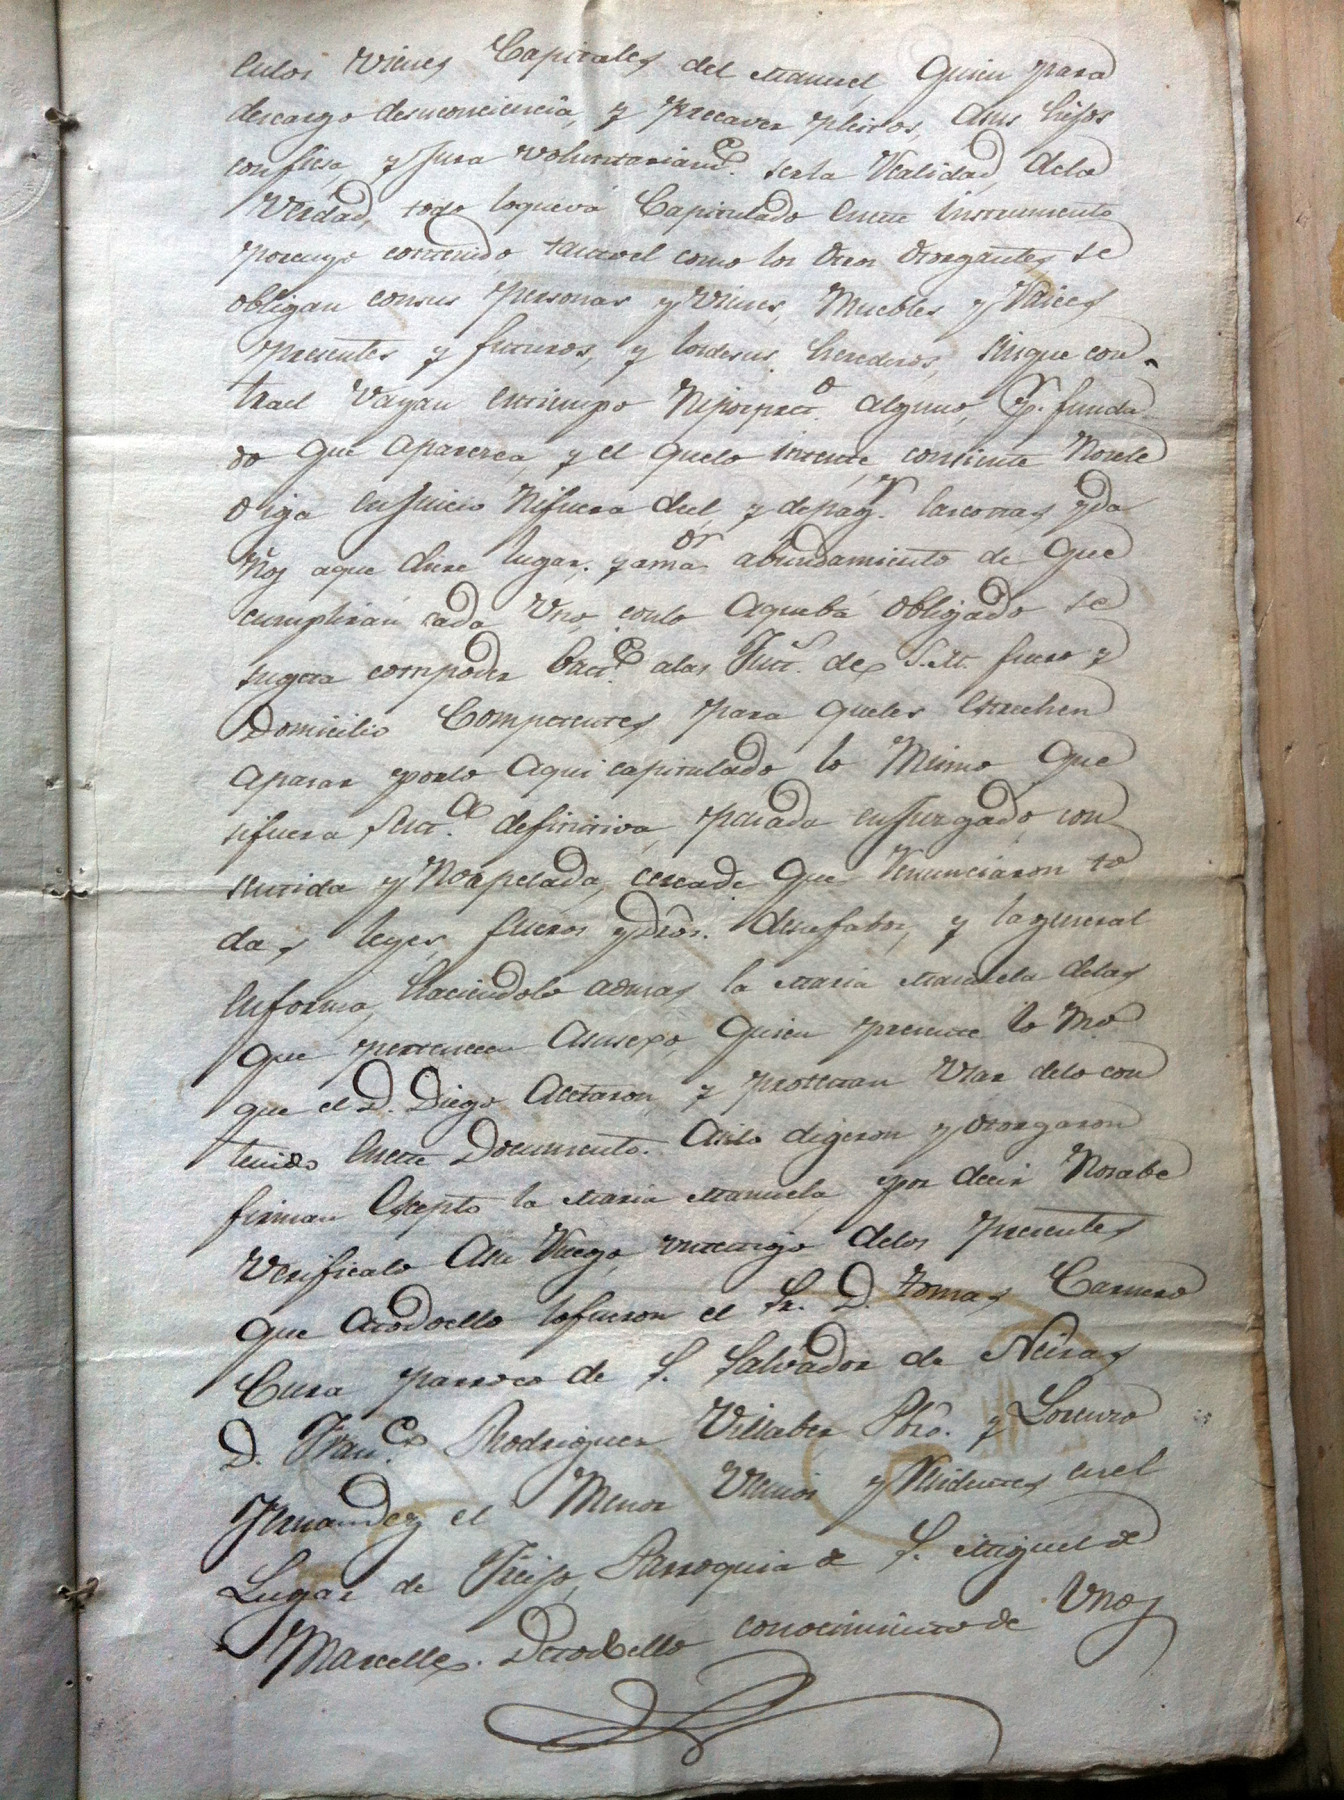 enlos vienes Capitales del Manuel, Quien para
descargo desuconciencia, y precaver pleitos, Asus hijos
confiesa, y Jura voluntariamte. serla Realidad, dela
Verdad, todo loquevá Capitulado eneste Instrumento
porcuyo contenido, tantoel como los otros otorgantes, se
obligan consus Personas y vienes, Muebles y Raices
presentes y futuros, y losdesus herederos, sinque con
trael Vayan entiempo Niporprето alguno, Pr. funda
do que aparezca, y el quelo intente, consiente Nosele
oiga enJuicio Nifuera deel, y depagr. lascostas, yda
ños aque diere lugar. yamaor abundamiento de Que
cumplirán cada Uno, conlo Aqueba obligado se
sugeta compoder bastte. alas Justs. de S.M. fuero y
Domicilio Competentes para queles estrechen
apasar porlo Aqui capitulado lo Mismo Que
sifuera Sentca. definitiva, pasada enJuzgado, con
sentida y Noapelada, cercade Que Renunciaron to
das leyes, fueros ydros. desufabor, y lageneral
enforma, haciendolo ademas la Maria Manuela delas
que pertenecen Asusexo, Quien presente lo Mo.
que el D. Diego Acetaron, y protestan Usar delo con
tenido eneste Documento. Asilo digeron y otorgaron
firman Escepto la Maria Manuela, por decir Nosabe
Verificalo Asu Ruego, untestigo delos presentes
que Atodoello lofueron el Sr. D. tomas Carnero
Cura parroco de S. Salvador de Neiras
D. Franco. Rodriguez Villaber Pbro. y Lorenzo
Fernandez el Menor Vecinos y Residentes enel
Lugar de Freijo, Parroquia de S. Miguel de
Marcelle. Detodoello conocimiento de Unos